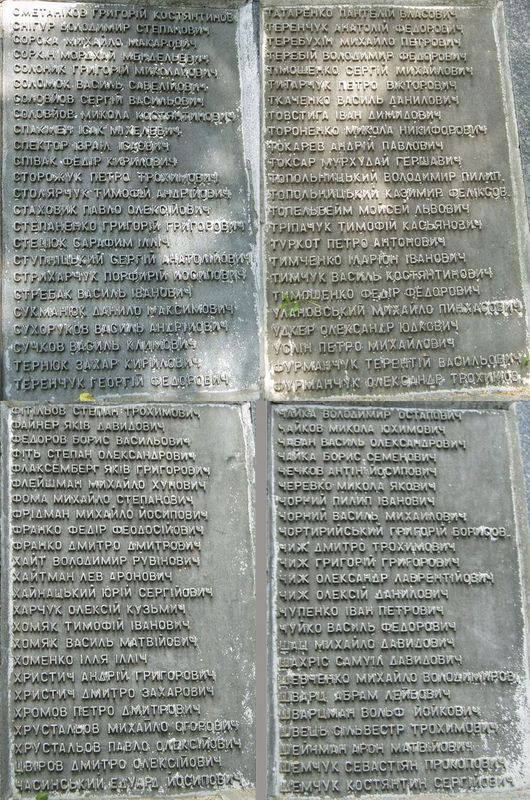 СМЕТАНКОВ ГРИГОРІЙ КОСТЯНТИНОВ
СНІГУР ВОЛОДИМИР СТЕПАНОВИЧ
СОРОКА МИХАЙЛО МАКАРОВИЧ
СОРКІН МОРДУХ МЕНДЕЛЬЕВИЧ
СОЛОНИК ГРИГОРІЙ МИКОЛАЙОВИЧ
СОЛОМОК ВАСИЛЬ САВЕЛІЙОВИЧ
СОЛОВЙОВ СЕРГІЙ ВАСИЛЬОВИЧ
СОЛОВЙОВ МИКОЛА КОСТЯНТИНОВИЧ
СПАКМЕН ІСАК МІХЕЛЕВИЧ
СПЕКТОР ІЗРАЇЛ ІСАЄВИЧ
СПІВАК ФЕДІР КИРИЛОВИЧ
СТОРОЖУК ПЕТРО ТРОХИМОВИЧ
СТОЛЯРЧУК ТИМОФІЙ АНДРІЙОВИЧ
СТАХОВИК ПАВЛО ОЛЕКСІЙОВИЧ
СТЕПАНЕНКО ГРИГОРІЙ ГРИГОРОВИЧ
СТЕЦЮК САРАФИМ ІЛЛІЧ
СТУПНІЦЬКИЙ СЕРГІЙ АНАТОЛІЙОВИЧ
СТРИХАРЧУК ПОРФИРІЙ ЙОСИПОВИЧ
СТРЕБАК ВАСИЛЬ ІВАНОВИЧ
СУКМАНЮК ДАНИЛО МАКСИМОВИЧ
СУХОРУКОВ ВАСИЛЬ АНДРІЙОВИЧ
СУЧКОВ ВАСИЛЬ КЛИМОВИЧ
ТЕРНЮК ЗАХАР КИРИЛОВИЧ
ТЕРЕНЧУК ГЕОРГІЙ ФЕДОРОВИЧ
ТАТАРЕНКО ПАНТЕЛІЙ ВЛАСОВИЧ
ТЕРЕНЧУК АНАТОЛІЙ ФЕДОРОВИЧ
ТЕРЕБУХІН МИХАЙЛО ПЕТРОВИЧ
ТЕРЕБІЙ ВОЛОДИМИР ФЕДОРОВИЧ
ТИМОШЕНКО СЕРГІЙ МИХАЙЛОВИЧ
ТИТАРЧУК ПЕТРО ВІКТОРОВИЧ
ТКАЧЕНКО ВАСИЛЬ ДАНИЛОВИЧ
ТОВСТИГА ІВАН ДИМИДОВИЧ
ТОРОНЕНКО МИКОЛА НИКИФОРОВИЧ
ТОКАРЕВ АНДРІЙ ПАВЛОВИЧ
ТОКСАР МУРХУДАЙ ГЕРШАВИЧ
ТОПОЛЬНИЦЬКИЙ ВОЛОДИМИР ПИЛИП.
ТОПОЛЬНИЦЬКИЙ КАЗИМИР ФЕЛІКСОВ.
ТОПЕЛЬБЕЙМ МОИСЕЙ ЛЬВОВИЧ
ТРІПАЧУК ТИМОФІЙ КАСЬЯНОВИЧ
ТУРКОТ ПЕТРО АНТОНОВИЧ
ТИМЧЕНКО ІЛАРІОН ІВАНОВИЧ
ТИМЧУК ВАСИЛЬ КОСТЯНТИНОВИЧ
ТИМОШЕНКО ФЕДІР ФЕДОРОВИЧ
УЛАНОВСЬКИЙ МИХАЙЛО ПИНХАСОВИЧ
УДКЕР ОЛЕКСАНДР ЮДКОВИЧ
УСНІН ПЕТРО МИХАЙЛОВИЧ
ФУРМАНЧУК ТЕРЕНТІЙ ВАСИЛЬОВИЧ
ФУРМАНЧУК ОЛЕКСАНДР ТРОХИМОВ
ФІТІЛЬОВ СТЕПАН ТРОХИМОВИЧ
ФАЙНЕР ЯКІВ ДАВИДОВИЧ
ФЕДОРОВ БОРИС ВАСИЛЬОВИЧ
ФІТЬ СТЕПАН ОЛЕКСАНДРОВИЧ
ФЛАКСЕМБЕРГ ЯКІВ ГРИГОРОВИЧ
ФЛЕЙШМАН МИХАЙЛО ХУНОВИЧ
ФОМА МИХАЙЛО СТЕПАНОВИЧ
ФРІДМАН МИХАЙЛО ЙОСИПОВИЧ
ФРАНКО ФЕДІР ФЕОДОСІЙОВИЧ
ФРАНКО ДМИТРО ДМИТРОВИЧ
ХАЙТ ВОЛОДИМИР РУВІНОВИЧ
ХАЙТМАН ЛЕВ АРОНОВИЧ
ХАЙНАЦЬКИЙ ЮРІЙ СЕРГІЙОВИЧ
ХАРЧУК ОЛЕКСІЙ КУЗЬМИЧ
ХОМЯК ТИМОФІЙ ІВАНОВИЧ
ХОМЯК ВАСИЛЬ МАТВІЙОВИЧ
ХОМЕНКО ІЛЛЯ ІЛЛІЧ
ХРИСТИЧ АНДРІЙ ГРИГОРОВИЧ
ХРИСТИЧ ДМИТРО ЗАХАРОВИЧ
ХРОМОВ ПЕТРО ДМИТРОВИЧ
ХРУСТАЛЬОВ МИХАЙЛО ЄГОРОВИЧ
ХРУСТАЛЬОВ ПАВЛО ОЛЕКСІЙОВИЧ
ЦВІРОВ ДМИТРО ОЛЕКСІЙОВИЧ
ЧАСИНСЬКИЙ ЕДУАРД ЙОСИПОВИЧ
ЧАЙКА ВОЛОДИМИР ОСТАПОВИЧ
ЧАЙКОВ МИКОЛА ЮХИМОВИЧ
ЧАБАН ВАСИЛЬ ОЛЕКСАНДРОВИЧ
ЧАЙКА БОРИС СЕМЕНОВИЧ
ЧЕЧКОВ АНТІН ЙОСИПОВИЧ
ЧЕРЕВКО МИКОЛА ЯКОВИЧ
ЧОРНИЙ ПИЛИП ІВАНОВИЧ
ЧОРНИЙ ВАСИЛЬ МИХАЙЛОВИЧ
ЧОРТИРИЙСЬКИЙ ГРИГОРІЙ БОРИСОВ.
ЧИЖ ДМИТРО ТРОХИМОВИЧ
ЧИЖ ГРИГОРІЙ ГРИГОРОВИЧ
ЧИЖ ОЛЕКСАНДР ЛАВРЕНТІЙОВИЧ
ЧИЖ ОЛЕКСІЙ ДАНИЛОВИЧ
ЧУПЕНКО ІВАН ПЕТРОВИЧ
ЧУЙКО ВАСИЛЬ ФЕДОРОВИЧ
ШАЦ МИХАЙЛО ДАВИДОВИЧ
ШАХРІС САМУЇЛ ДАВИДОВИЧ
ШЕВЧЕНКО МИХАЙЛО ВОЛОДИМИРОВ
ШВАРЦ АБРАМ ЛЕЙБОВИЧ
ШВАРЦМАН ВОЛЬФ ЙОЙКОВИЧ
ШВЕЦЬ СІЛЬВЕСТР ТРОХИМОВИЧ
ШЕЙЧМАН АРОН МАТВІЙОВИЧ
ШЕМЧУК СЕВАСТІЯН ПРОКОПОВИЧ
ШЕМЧУК КОСТЯНТИН СЕРГІЙОВИЧ